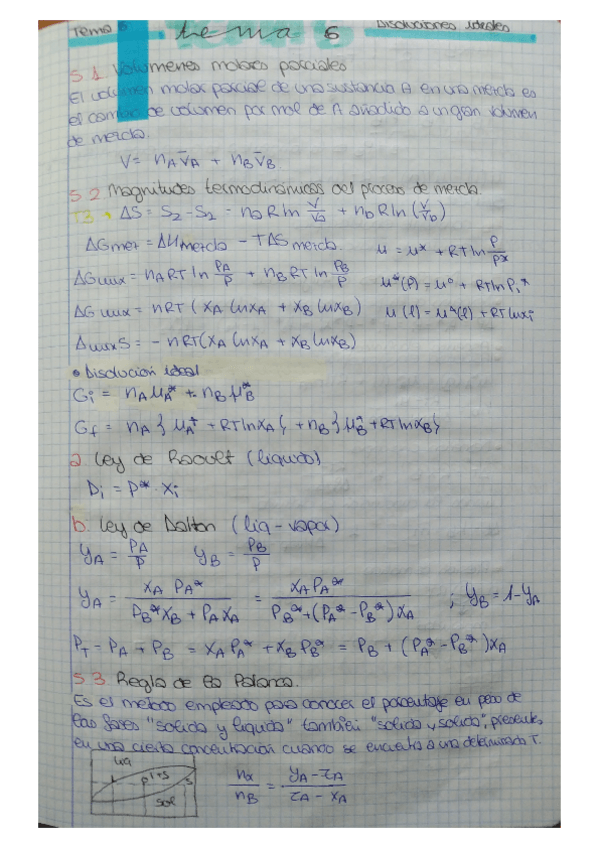 Tema 5 tema 5 Disoluciones ideales
5.1 Volumenes molares parciales
El volumen molar parcial de una sustancia A en una mezcla es
el cambio de volumen por mol de A añadido a un gran volumen
de mezcla.
V = nA V̄A + nB V̄B
5.2 Magnitudes termodinámicas del proceso de mezcla.
ΔS = S2 - S1 = nD R ln V/Va + nb R ln (V/Vb)
ΔGmet = ΔHmezcla - TΔSmezcla μ = μ* + RT ln P/P*
ΔGmix = nA RT ln PA/P + nB RT ln PB/P μ*(l) = μ° + RT ln Pi*
ΔGmix = nRT (xA ln xA + xB ln xB) μ(l) = μ*(l) + RT ln xi
ΔmixS = - nRT(xA ln xA + xB ln xB)
• Disolución ideal
Gi = nA μA* + nB μB*
Gf = nA { μA* + RT ln xA { + nB } μB* + RT ln xB }
a. Ley de Raoult (liquido)
Pi = P* · xi
b. Ley de Dalton (liq - vapor)
yA = PA/P yB = PB/P
yA = xA PA* / PB* xB + PA xA = xA PA* / PB* + (PA* - PB*) xA ; yB = 1 - yA
PT = PA + PB = xA PA* + xB PB* = PB + (PA* - PB*) xA
5.3 Regla de la Palanca.
Es el metodo empleado para conocer el porcentaje en peso de
las fases "solida y liquida" también "solida y solida", presente,
en una cierta concentración cuando se encuentra a una determinada T.
liq
P l+S S
sol
nα/nB = yA - zA / zA - xA